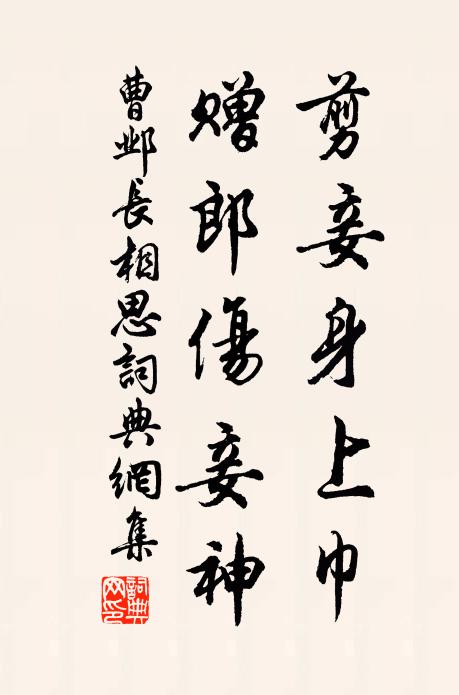 剪妾身上巾
贈郎傷妾神
曹邺長相思詞典網集
詞典
网印